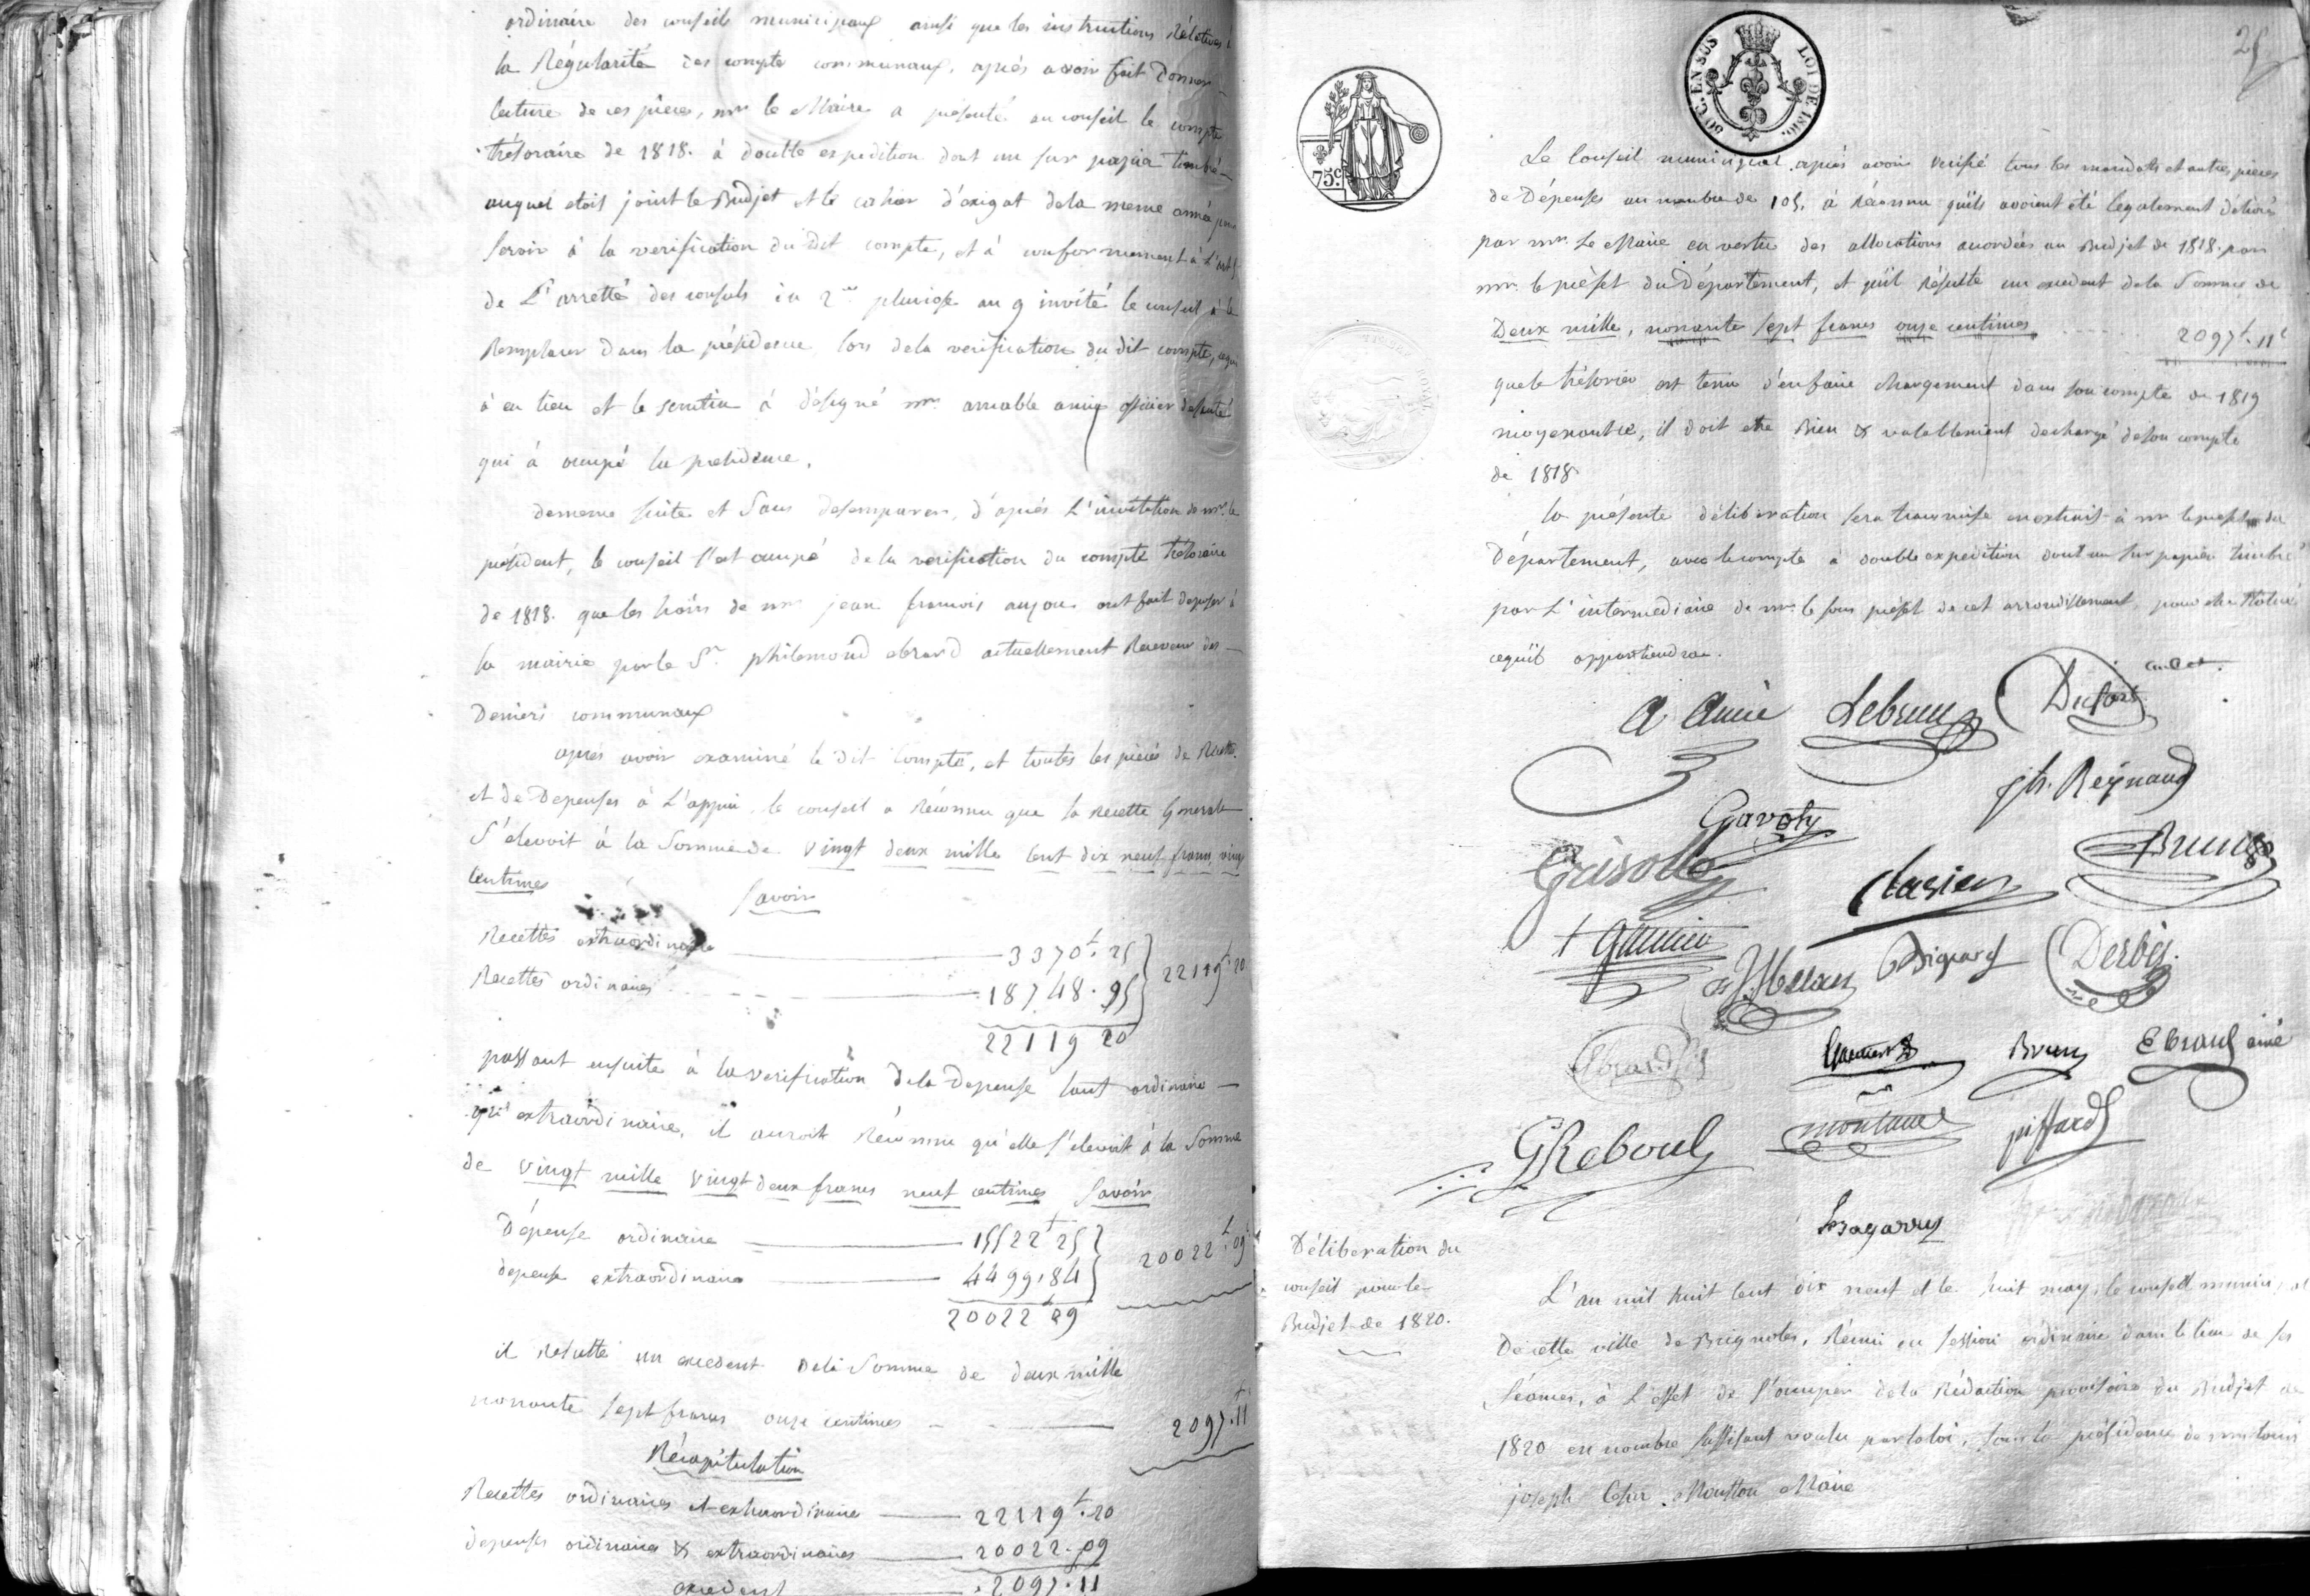 ordinaire des conseils municipaux ainsi que les instructions Rélatives à
la Régularité des compte communaux, après avoir fait donner
lecture de ces pièces, mr le Maire a présenté au conseil le compte
trésoraire de 1818. à double expedition dont un sur papier timbré
auquel etoit joint le Budjet et le cahier d'exigat dela meme année pour
servir à la verification du dit compte, et à conformement à l'art
de L'arretté des consuls du 2me pluviose an 9 invité le conseil à le
Remplacer dans la présidence lors dela verification du dit compte, cequi
à eu lieu et le scrutin à désigné mr amable amic officier desanté
qui à occupé la présidence.
dememe suite et Sans desemparer, d'après L'invitation de mr le
président, le conseil s'est occupé dela verification du compte trésoraire
de 1818. que les hoirs de mr jean francois anjou ont fait deposer à
la mairie par le Sr. philemond ebrard actuellement Receveur des
Deniers communaux
après avoir examiné le dit Compte, et toutes les pièces de Recette
et de Depenses à L'appui, le conseil a Réconnu que la Recette Generale
S'elevoit à la Somme de vingt deux mille Cent dix neuf francs vingt
Centimes
Savoir
Recettes extraordinaire 3370f.25
Recettes ordinaires 18748.95 22119f.20
22119 20
passant ensuite à la verification dela Depense tant ordinaire
qu'extraordinaire, il auroit Réconnu qu'elle s'elevoit à la Somme
de vingt mille vingt deux francs neuf centimes Savoir
Dépense ordinaire 15522f25
depense extraordinaire 4499.84 20022f.09
20022f09
il Resulte un excedent dela Somme de deux mille
nonante sept francs onze centimes 2097.11
Récapitulation
Recettes ordinaires et extraordinaire 22119f.20
depenses ordinaires & extraordinaires 20022.09
excedent 2097.11
25
50 C. EN SUS LOI DE 1816.
75c.
Le Conseil municipal après avoir verifié tous les mandats et autres pieces
de Dépenses au nombre de 105. à Réconnu qu'ils avoient été legalement délivrés
par mr. Le Maire en vertu des allocations accordées au Budjet de 1818. par
mr. le préfet du Département, et qu'il Résulte un excedent dela Somme de
Deux mille, nonante sept francs onze centimes 2097f.11c
que le trésorier est tenu d'en faire chargement dans son compte de 1819
moyenant ce, il doit etre Bien & valablement dechargé deson compte
de 1818
la présente déliberation sera transmise en extrait à mr le prefet du
Département, avec le compte à double expedition dont un sur papier timbré
par L'intermediaire de mr. le sous préfet de cet arrondissement, pour etre Statué
cequ'il appartiendra.
A Amic Lebrun Dufort
jh. Reynaud
Gavoty
Grisolle Brun
Clavier
Gassier Bigard Derbès
Brun Ebrard ainé
G Reboul montaud piffard
Bagarry
Déliberation du
conseil pour le
Budjet de 1820.
L'an mil huit Cent dix neuf et le huit may, le conseil municipal
De cette ville de Brignoles, Réuni en session ordinaire dans le lieu de ses
séances, à L'effet de s'occuper dela Rédaction provisoire du Budjet de
1820 en nombre suffisant voulu par la loi, sous la présidence de mr louis
joseph Cesar Moutton Maire